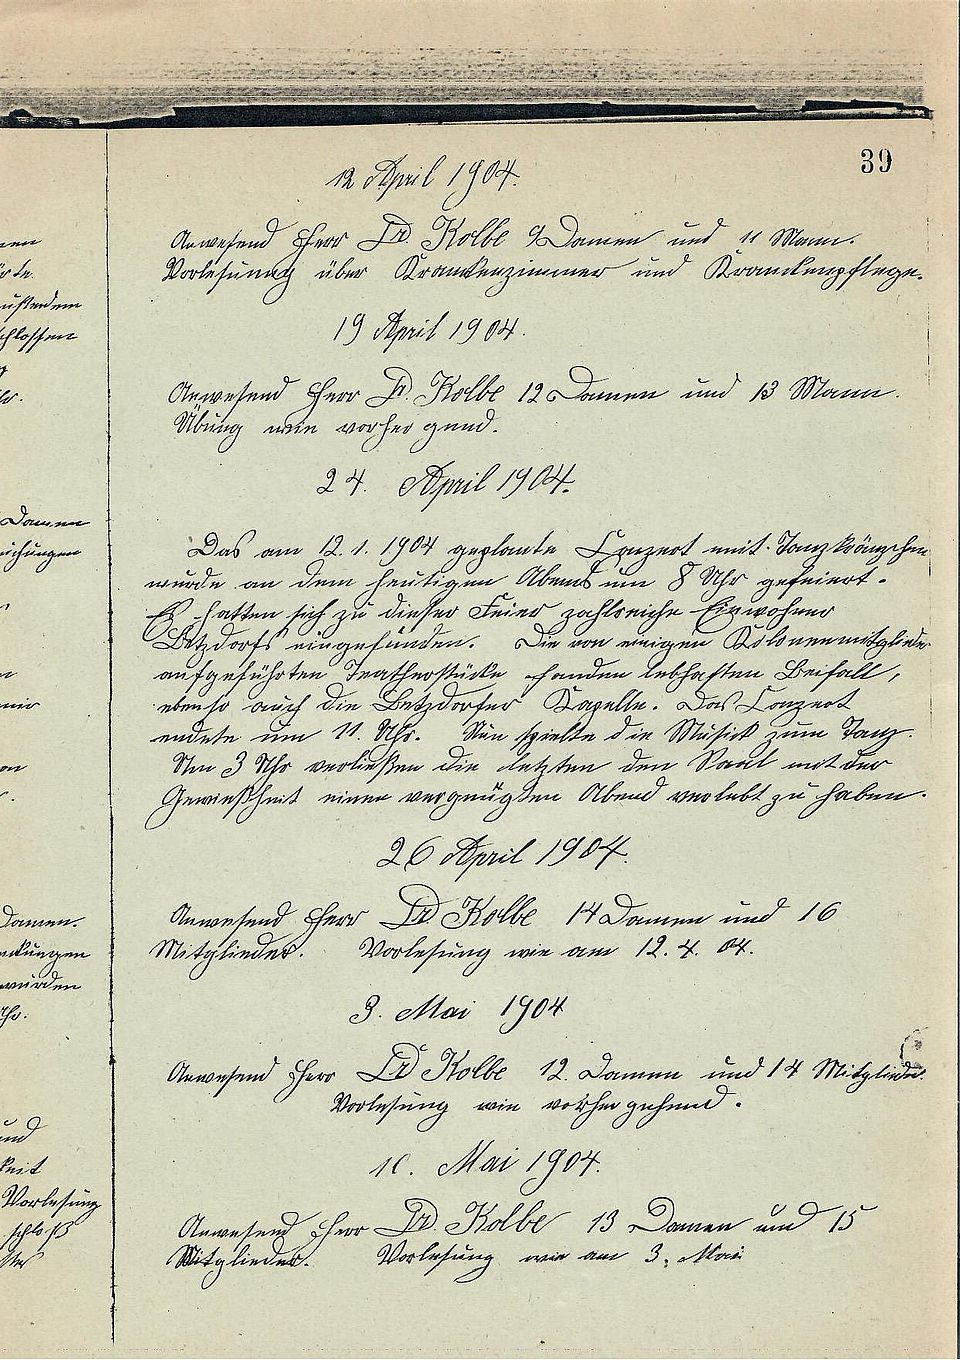 39
12 April 1904.
Anwesend Herr Dr. Kolbe 9 Damen und 11 Mann.
Vorlesung über Krankenzimmer und Krankenpflege.
19 April 1904.
Anwesend Herr Dr. Kolbe 12 Damen und 13 Mann.
Übung wie vorher gend.
24. April 1904.
Das am 12. 1. 1904 geplante Conzert mit Tanzkränzchen
wurde an dem heutigen Abend um 8 Uhr gefeiert.
Es hatten sich zu dieser Feier zahlreiche Einwohner
Betzdorfs eingefunden. Die von einigen Kolonnenmitglieder
aufgeführten Teatherstücke fanden lebhaften Beifall,
ebenso auch die Betzdorfer Kapelle. Das Conzert
endete um 11. Uhr. Nun spielte die Musick zum Tanz.
Um 3 Uhr verließen die letzten den Saal mit der
Gewißheit einen vergnügten Abend verlebt zu haben.
26 April 1904.
Anwesend Herr Dr Kolbe 14 Damen und 16
Mitglieder. Vorlesung wie am 12. 4. 04.
3. Mai 1904
Anwesend Herr Dr Kolbe 12. Damen und 14 Mitglieder.
Vorlesung wie vorher gehend.
10. Mai 1904.
Anwesend Herr Dr. Kolbe 13 Damen und 15
Mitglieder. Vorlesung wie am 3. Mai